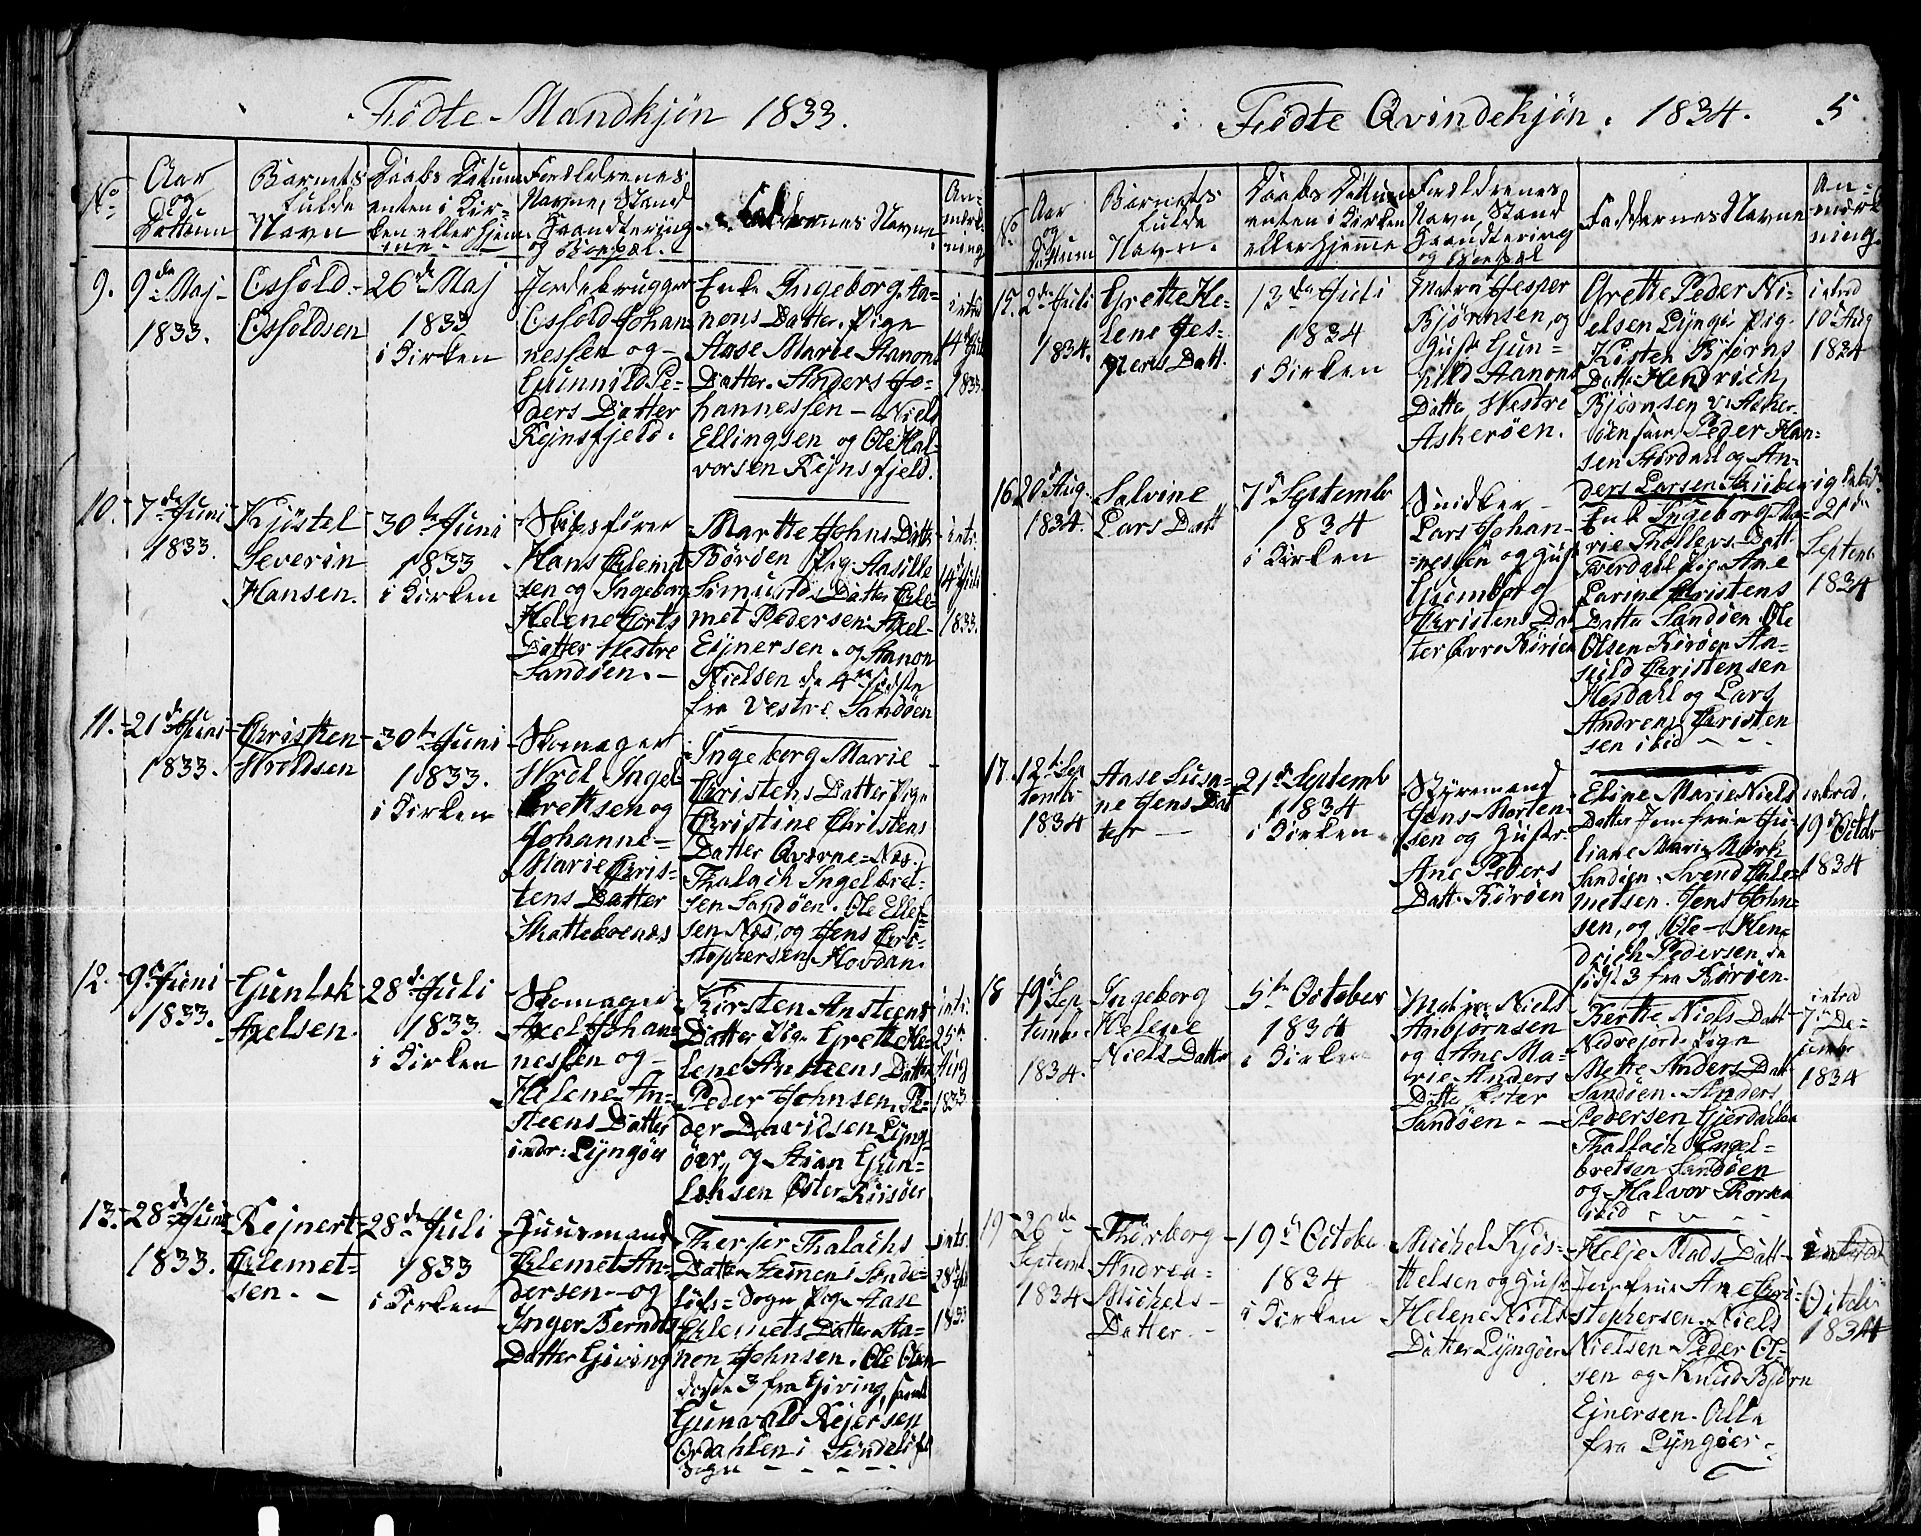 Fødte Mandkjön 1833.
No
Aar
og
Dattum
Barnets
fulde
Navn
Daabs Datum
enten i Kir-
ken eller Hjem-
me
Forældrenes
Navne, Stand
Haandtering
og Boepæl.
Faddernes Navne
An-
mærk-
ning
9.
9de Maj
1833.
Osfold
Osfoldsen
26de Maj
1833
i Kirken
Jordebrugger
Osfold Johan-
nessen og
Gunnild Pe-
ders Datter
Rejnsfjeld.
Enke Ingeborg Aa-
nons Datter. Pige
Aase Marie Aanons
Datter. Anders Jo-
hannessen - Niels
Ellingsen og Ole Hal-
vorsen Rejnsfjeld.
1833.
10.
7de Juni
1833.
Kjöstel
Severin
Hansen.
30te Juni
1833
i Kirken
Skibsfører
Hans Clemet-
sen og Ingeborg
Helene Corts
Datter Vestre
Sandøen.
Marthe Johns Datter
Börøen Pig Aasille
Somunds Datter Cle-
met Pedersen. Axel
Ejnersen. og Aanon
Nielsen de 4re sidste
fra Vestre Sandøen
intr.
14de Juli
1833.
11.
21de Juni
1833.
Christen
Wroldsen
30te Juni
1833.
i Kirken
Skomager
Wrol Ingel-
bretsen og
Johanne
Marie Chris-
tens Datter
Skattebrenes
Ingeborg Marie
Christens Datter Pige
Christine Christens
Datter Qverne=Næs.
Thalach Ingelbret-
sen Sandøen. Ole Ellef-
sen Næs, og Jens Chri-
stophersen Hovdan.
12.
9de Juni
1833.
Gunlek
Axelsen.
28de Juli
1833.
i Kirken
Skomager
Axel Johan-
nessen og
Helene An-
steens Datter
indr: Lyngøer
Kirsten Ansteens
Datter Pige Grette He-
lene Ansteens Datter
Peder Johnsen. Pe-
der Davidsen Lyng-
öer, og Stian Gun-
leksen Öster Riisøer
intr.
25de
Aug
1833
13.
28de Juni
1833.
Rejnert
Clemet-
sen.
28de Juli
1833
i Kirken
Huusmand
Clemet An-
dersen og
Inger Berndts
Datter Giving
Therser Thalachs
Datter Sönde-
löfs=Sogn Pige Aase
Clemets Datter. Aa-
non Johnsen. Ole Olsen
disse 3 fra Giving, samt
Gunvald Rejersen
Ordahlen i Söndelöfs
Sogn
1833
Fødte Qvindekjön. 1834.
5
No
Aar
og
Dattum
Barnets
fulde
Navn.
Daabs Dattum
enten i Kirken
eller Hjemme
Forældrenes
Navn, Stand
Haandtering
og Boepæl
Faddernes Navne
An-
mærk-
ning.
15.
2de Juli
1834.
Grette He-
lene Jes-
pers Datt.
13de Juli
1834
i Kirken
Matro Jesper
Bjørnsen, og
Hustr Gun-
hild Aanons
Datte Westre
Askerøen.
Grette Peder Ni-
elsen Lyngør Pig.
Kisten Bjørns
Datte Hendrich
Bjørnsen V. Asker-
øen samt Peder Han-
sen Stordahl og An-
ders Larsen
introd
10de Aug
1834
16
20de Aug.
1834.
Salvine
Lars Datt
7de Septembr
1834
i Kirken
Snidker
Lars Johan-
nessen og Hust
Guomborg
Christens Dat-
ter Øvre Körøen
Enk Ingeborg Ma-
rie Thollevs Datt
Tverdahl Pig Ane
Larine Christens
Datte Sandøen Ole
Olsen Körøen Aa-
sild Christensen
Hesdahl og Lars
Andreas Christen
sen ibid
21de
Septemb
1834
17.
12te Sep
tembr
1834
Aase Susa-
ne Jens Dat
ter
21de Septemb
1834
i Kirken
Styremand
Jens Morten-
sen og Hustr
Ane Peders
Datt. Körøen
Eline Marie Niels
Datter Jomfrue Ju-
liane Marie Mörk
Sandøen. Svend Cle-
metsen. Jens John-
sen, og Ole Hen-
drich Pedersen de
sidst 3 fra Körøen.
introd.
19de Octobr
1834
18
19de Sep
tembr
1834.
Ingeborg
Helene
Niels Datte
5te October
1834
i Kirken
Matros Niels
Anbjørnsen
og Ane Ma-
rie Anders
Datte Øster
Sandøen.
Berthe Niels Datt
Nedrejord Pige
Mette Anders Datt
Sandøen. Anders
Pedersen Gjerdalen
Thallach Engel-
bretsen Sandøen
og Halvor Thorsen
ibid
introd
7de De-
cembr
1834
19
26de
Septemb
1834
Thorborg
Andrea
Michels
Datter.
19de Octobe
1834
i Kirken
Michel Kjøs-
telsen og Hust
Helene Niels
Datter Lyngøer
Helje Mads Datt
Jomfrue Ane Chri-
stophersen. Niels
Nielsen. Peder Ol-
sen og Knud Bjørn
Ejnersen. Alle
fra Lyngøer.
introd
Octobr
1834